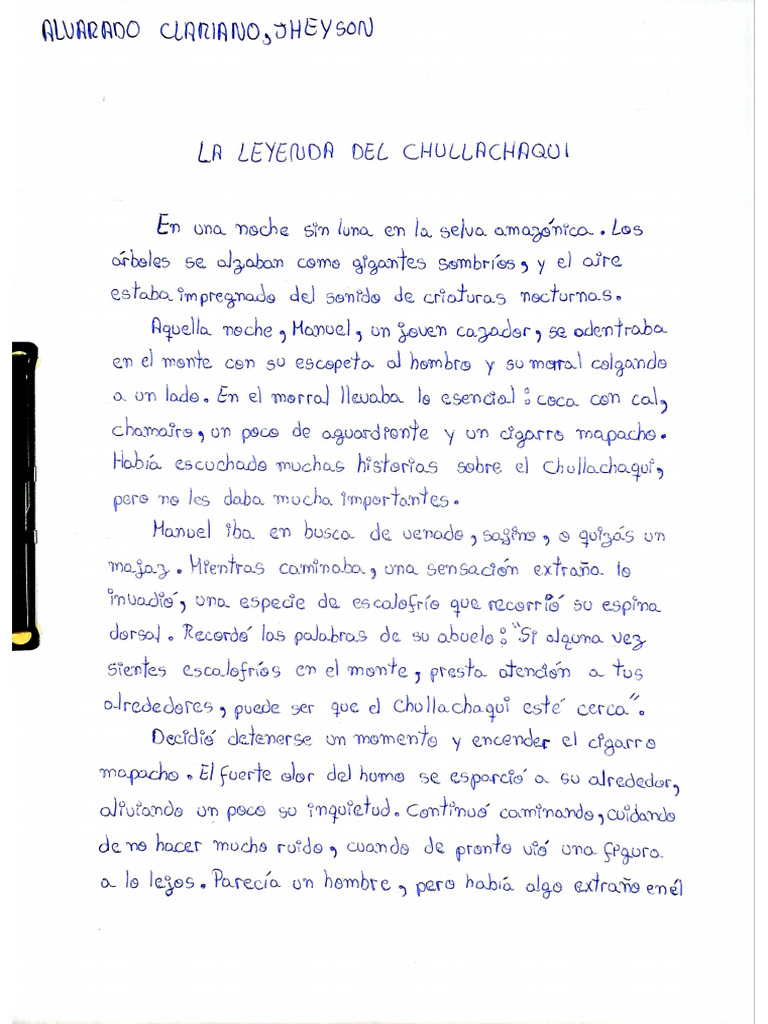 ALVARADO CLARIANO, JHEYSON
LA LEYENDA DEL CHULLACHAQUI
En una noche sin luna en la selva amazónica. Los
árboles se alzaban como gigantes sombríos, y el aire
estaba impregnado del sonido de criaturas nocturnas.
Aquella noche, Manuel, un joven cazador, se adentraba
en el monte con su escopeta al hombro y su morral colgando
a un lado. En el morral llevaba lo esencial: coca con cal,
chamairo, un poco de aguardiente y un cigarro mapacho.
Había escuchado muchas historias sobre el Chullachaqui,
pero no les daba mucha importantes.
Manuel iba en busca de venado, sajino, o quizás un
majaz. Mientras caminaba, una sensación extraña lo
invadió, una especie de escalofrío que recorrió su espina
dorsal. Recordó las palabras de su abuelo: "Si alguna vez
sientes escalofríos en el monte, presta atención a tus
alrededores, puede ser que el Chullachaqui esté cerca".
Decidió detenerse un momento y encender el cigarro
mapacho. El fuerte olor del humo se esparció a su alrededor,
aliviando un poco su inquietud. Continuó caminando, cuidando
de no hacer mucho ruido, cuando de pronto vió una figura
a lo lejos. Parecía un hombre, pero había algo extraño en él